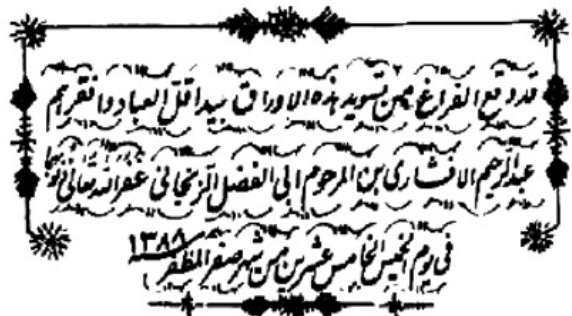 قد وقع الفراغ من تسوید هذه الاوراق بید اقل العباد وافقرهم
عبدالرحیم الافشاری بن المرحوم ابی الفضل الزنجانی غفر الله تعالی
فی یوم الخمیس الخامس عشرین من شهر صفر المظفر سنه ۱۳۸۸